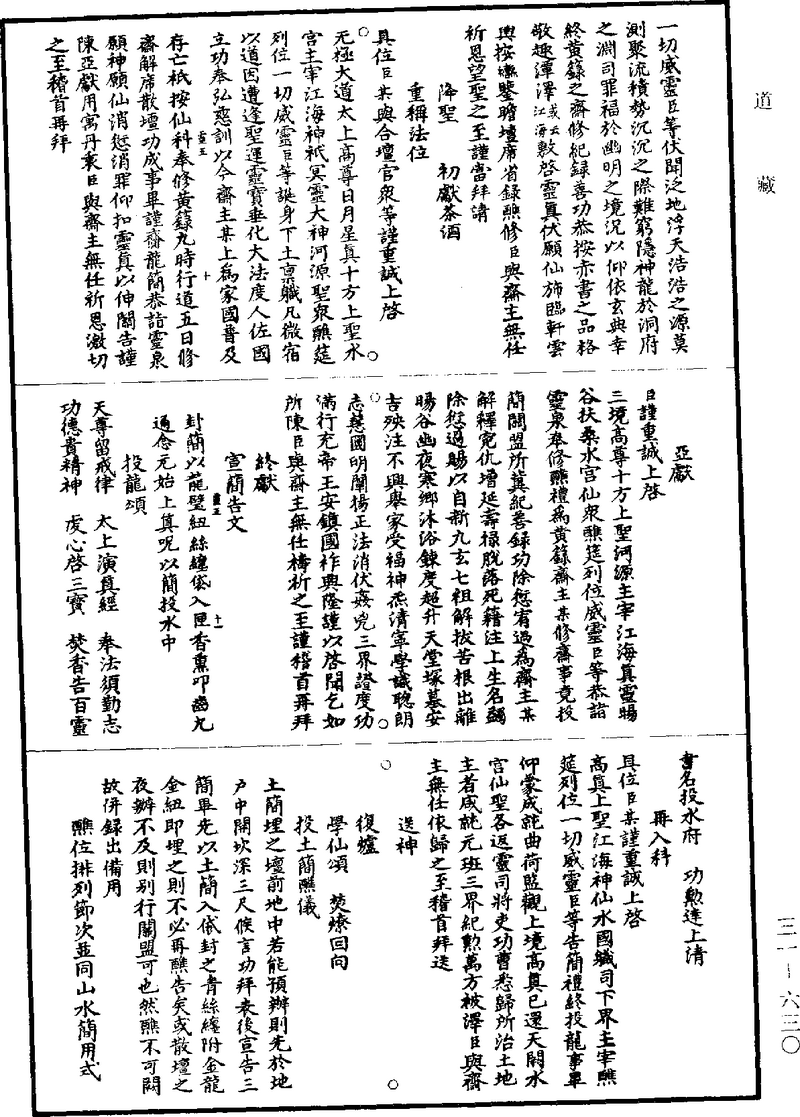 道藏
三一—六三〇
一切威靈臣等伏聞泛地浮天浩浩之源莫
測聚流積勢沉沉之際難窮隱神龍於洞府
之淵司罪福於幽明之境況以仰依玄典幸
終黃籙之齋修紀錄善功恭按赤書之品格
敬趣潭澤或云江海敷啓靈真伏願仙斾臨軒雲
輿按 鑒瞻壇席省錄醮修臣與齋主無任
祈恩望聖之至謹當拜請
降聖 初獻茶酒
重稱法位
具位臣某與合壇官衆等謹重誠上啓
無極大道太上高尊日月星真十方上聖水
宮主宰江海神祇冥靈大神河源聖衆醮筵
列位一切威靈臣等誕身下土稟職凡微宿
以道因遭逢聖運靈寶垂化大法度人佐國
立功奉弘慈訓以今齋主某上為家國普及
存亡祇按仙科奉修黃籙九時行道五日修
齋解席散壇功成事畢謹齎龍簡恭詣靈泉
願神願仙消愆消罪仰扣靈真以伸關告謹
陳亞獻用寓丹衷臣與齋主無任祈恩激切
之至稽首再拜
亞獻
臣謹重誠上啓
三境高尊十方上聖河源主宰江海真靈暘
谷扶桑水宮仙衆醮筵列位威靈臣等恭詣
靈泉奉修醮禮為黃籙齋主某修齋事竟投
簡關盟所冀紀善錄功除愆宥過為齋主某
解釋冤仇增延壽祿脫落死籍注上生名蠲
除愆過賜以自新九玄七祖解拔苦根出離
暘谷幽夜寒鄉沐浴鍊度超升天堂塚墓安
吉殃注不興舉家受福神炁清寧學識聰朗
志慧圓明闡揚正法消伏姦兇三界證度功
滿行充帝王安鎮國祚興隆謹以啓聞乞如
所陳臣與齋主無任禱祈之至謹稽首再拜
終獻
宣簡告文
封簡以龍璧紐絲纏袋入匣香熏叩齒九
通念元始上真呪以簡投水中
投龍頌
天尊留戒律 太上演真經 奉法須勤志
功德貴精神 虔心啓三寶 焚香告百靈
書名投水府 功勲達上清
再入科
具位臣某謹重誠上啓
高真上聖江海神仙水國職司下界主宰醮
筵列位一切威靈臣等告簡禮終投龍事畢
仰蒙成就曲荷監觀上境高真已還天闕水
宮仙聖各返靈司將吏功曹悉歸所治土地
主者咸就元班三界紀勲萬方被澤臣與齋
主無任依歸之至稽首拜送
送神
復爐
學仙頌 焚燎回向
投土簡醮儀
土簡埋之壇前地中若能預辦則先於地
戶中開坎深三尺候言功拜表後宣告三
簡畢先以土簡入袋封之青絲纏附金龍
金紐即埋之則不必再醮告矣或散壇之
夜辦不及則別行關盟可也然醮不可闕
故併錄出備用
醮位排列節次並同山水簡用式